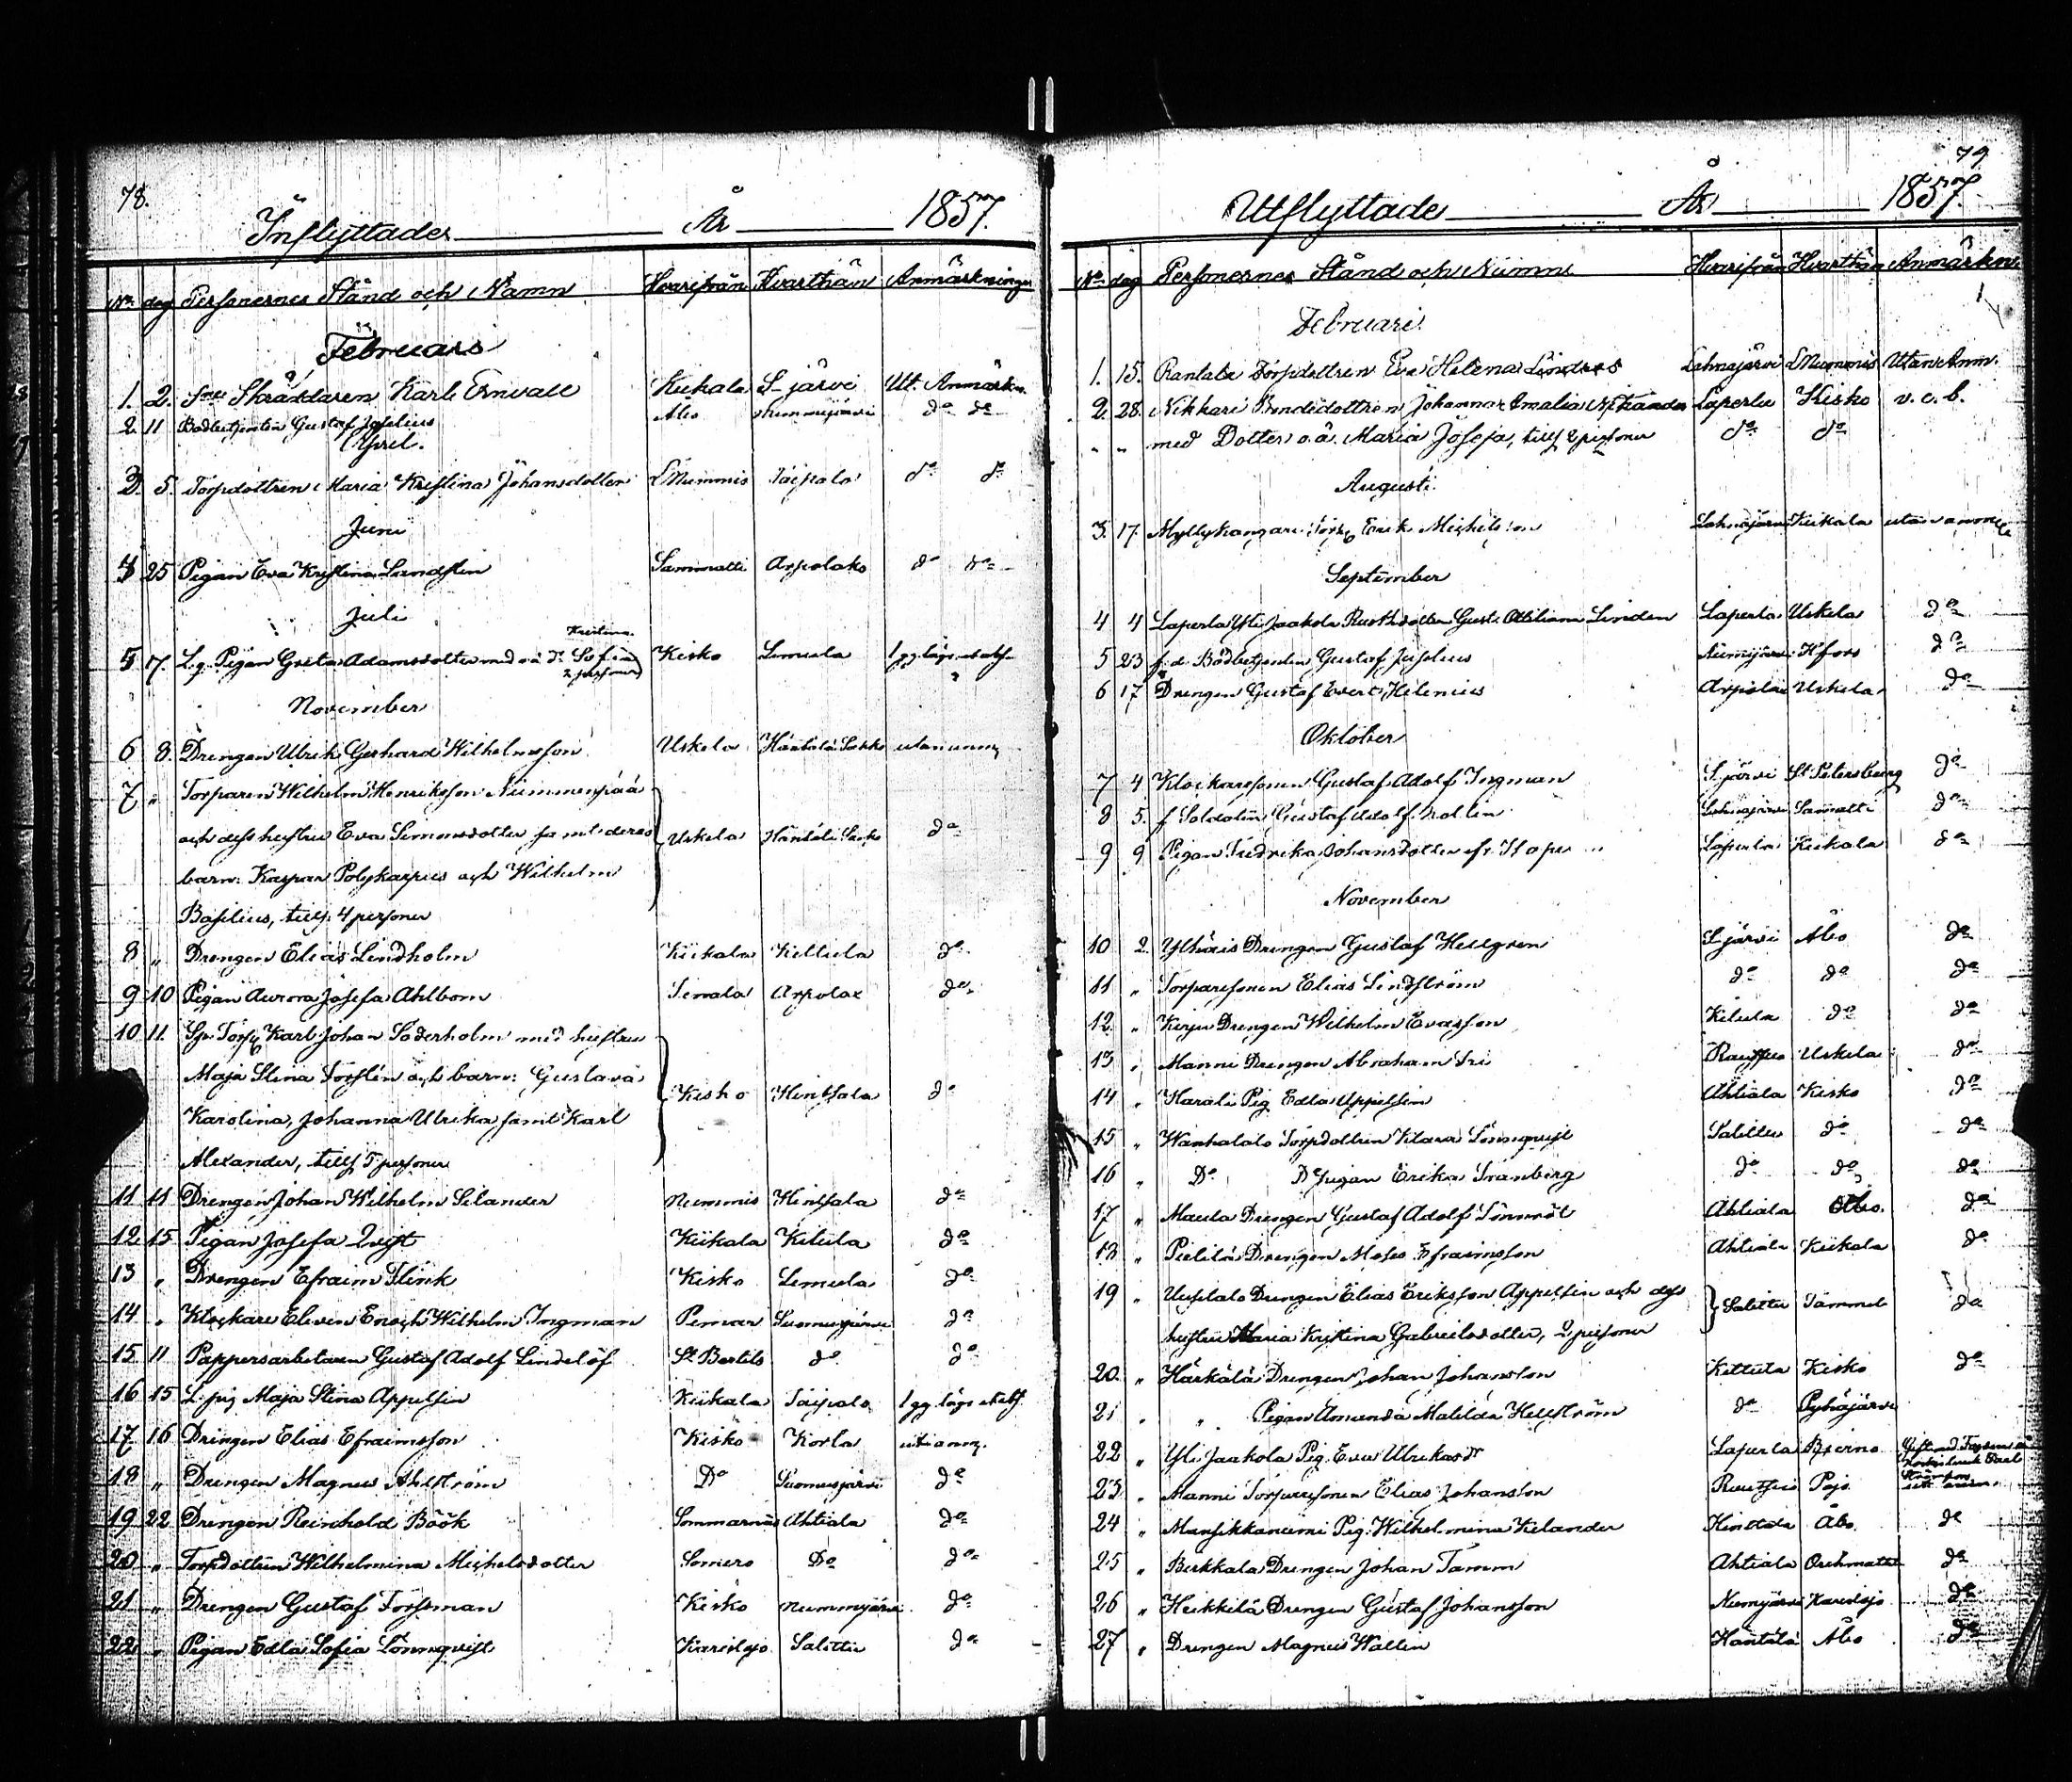 78.
Inflyttade År 1857.
No. dag Personernes Stånd och Namn Hvarifrån Hvarthän Anmärkningar
Februari
1. 2. Skräddaren Karl Ernvall Kiikala S-järvi Ut. Anmärkn.
2. 11 Bödbetjenten Gustaf Juselius Åbo Nummijärvi do do
April.
3. 5. Torpdottren Maria Kristina Johansdotter L Nummis Taipale do do
Juni
4 25 Pigan Eva Kristina Sandstén Sammatti Arpolaks do do
Juli
Kristina
5 17. L.q. Pigan Greta Adamsdotter med oä dr Sofia Kisko Lemula 1 gg lägr.
2 personer
November
6 8. Drengen Ulrik Gerhard Wilhelmsson Uskela Häntälä utan anm.
7 " Torparen Wilhelm Henriksson Nummenpää
och dess hustru Eva Simonsdotter samt deras Uskela Häntälä do
barn: Kaspar Polykarpus och Wilhelm
Basilius, tills. 4 personer
8 " Drengen Elias Lindholm Kiikala Kettula do
9 10 Pigan Aurora Josefa Ahlbom Tenala Arpolax do
10 11. Torp Karl Johan Söderholm med hustru
Maja Stina Torstén och barn: Gustava Kisko Hintsala do
Karolina, Johanna Ulrika samt Karl
Alexander, tills 5 personer
11 11 Drengen Johan Wilhelm Silander Nummis Hintsala do
12 15 Pigan Josefa Qvist Kiikala Kitula do
13 " Drengen Efraim Flink Kisko Lemula do
14 " Klockare Eleven Enoch Wilhelm Ingman Pemar Suomusjärvi do
15 11 Pappersarbetaren Gustaf Adolf Lindelöf St Bertils do do
16 15 L. pig Maja Stina Appelsin Kiikala Taipale 1 gg. lägr.
17 16 Drengen Elias Efraimsson Kisko Korla utan anm.
18 " Drengen Magnus Ahlström Do Suomusjärvi do
19 22 Drengen Reinhold Böök Sommarnäs Ahtiala do
20 " Torpdottren Wilhelmina Michelsdotter Somero Do do
21 " Drengen Gustaf Forssman Kisko Nummijärvi do
22 " Pigan Edla Sofia Lönnqvist Karislojo Salittu do
79
Utflyttade År 1857.
No. dag Personernes Stånd och Namn Hvarifrån Hvarthän Anmärkn.
Februari.
1. 15. Rantala Torpdottren Eva Helena Lindros Lahnajärvi L Nummis Utan Anm.
2. 28. Nikkari Bondedottren Johanna Amalia Nikander Laperla Kisko v. c. b.
" " med Dotter o.ä. Maria Josefa, tills 2 personer do do
Augusti.
3. 17. Myllykangari Torp Erik Michelsson Lahnajärvi Kiikala utan anm.
September
4 4 Laperla Yli Jaakola Rusth.dotter Gust. Ottiliana Linden Laperla Uskela do
5 23 f.d. Bödbetjenten Gustaf Juselius Numijärvi Hfors do
6 17 Drengen Gustaf Evert Helenius Arpolax Uskela do
Oktober
7 4 Klockaresonen Gustaf Adolf Ingman S-järvi St Petersburg do
8 5. f Soldaten Gustaf Adolf Nollin Lahnajärvi Samatti do
9 9 Pigan Fredrika Johansdotter Laperla Kiikala do
November
10 2. Ylhäis Drengen Gustaf Hellgren S-järvi Åbo do
11 " Torparesonen Elias Lindström do do do
12. " Drengen Wilhelm Evasson Kitula do do
13 " Manni Drengen Abraham Fri Uskela do
14 " Harali Pig Edla Appelsin Ahtiala Kisko do
15 " Wanhatalo Torpdottren Klara Lönnqvist Salittu do do
16 " Do Do Pigan Erika Tranberg do do do
17 " Maula Drengen Gustaf Adolf Lönnrot Ahtiala Åbo. do
18 " Pietilä Drengen Moses Efraimsson Ahtiala Kiikala do
19 " Uusitalo Drengen Elias Eriksson Appelsin och dess Salittu Tammela do
hustru Maria Kristina Gabrielsdotter, 2 personer
20. " Härkälä Drengen Johan Johansson Kettula Kisko do
21 " " Pigan Amanda Matilda Hellström do Pyhäjärvi
22 " Yli Jaakola Pig. Eva Ulrikasdr Laperla Bjerno
23 " Manni Torparesonen Elias Johansson Pojo
24 " Mansikkaniemi Pig. Wilhelmina Kelander Hintsala Åbo do
25 " Berkkala Drengen Johan Tamm Ahtiala Orihmattila do
26 " Heikkilä Drengen Gustaf Johansson Numijärvi Karislojo do
27 " Drengen Magnus Wallin Häntälä Åbo do